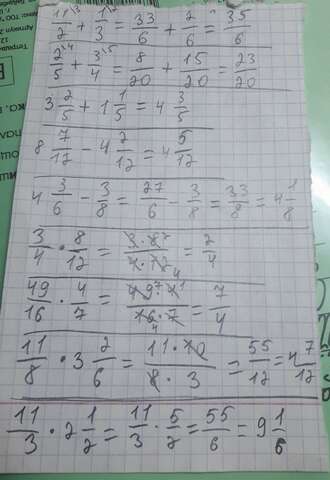 11/2 ³ + 1/3 ² = 33/6 + 2/6 = 35/6
2/5 ⁴ + 3/4 ⁵ = 8/20 + 15/20 = 23/20
3 2/5 + 1 1/5 = 4 3/5
8 7/12 - 4 2/12 = 4 5/12
4 3/6 - 3/8 = 27/6 - 3/8 = 33/8 = 4 1/8
3/4 · 8/12 = 3·8²/4·12₄ = 2/4
49/16 · 4/7 = 49⁷·4¹/16₄·7 = 7/4
11/8 · 3 2/6 = 11·10/8·3 = 55/12 = 4 7/12
11/3 · 2 1/2 = 11/3 · 5/2 = 55/6 = 9 1/6